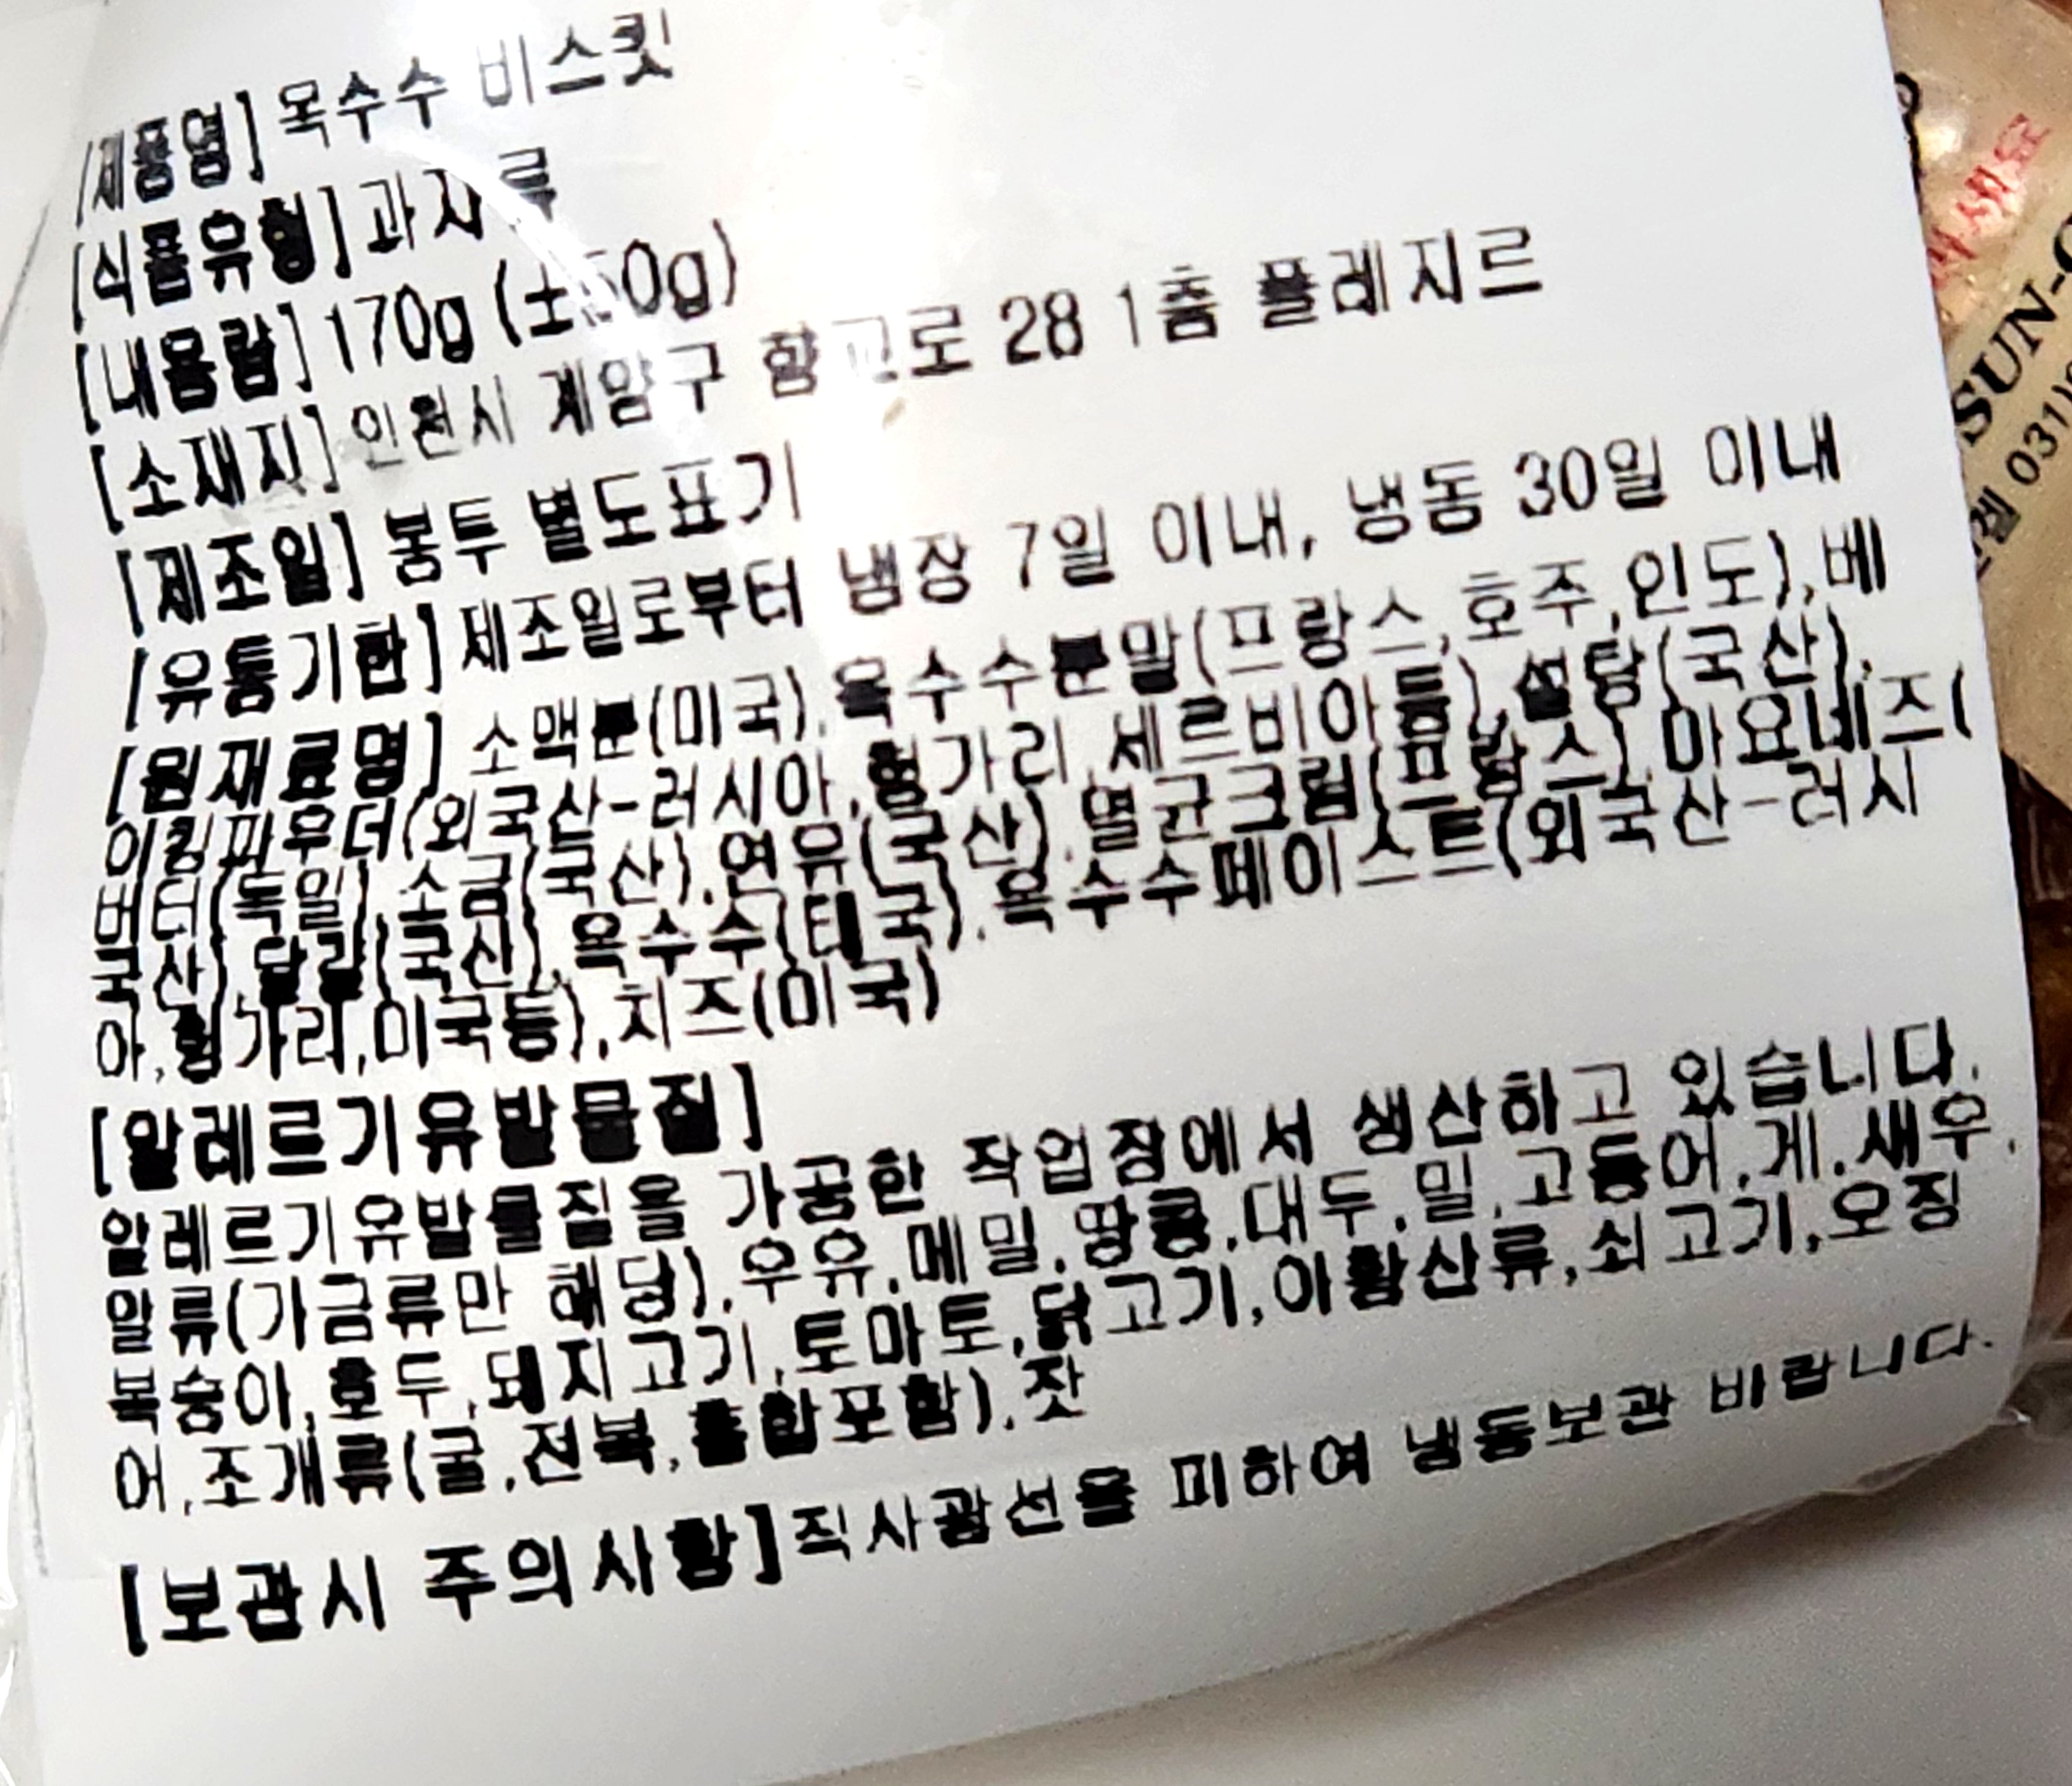 [제품명] 옥수수 비스킷
[식품유형] 과자류
[내용량] 170g (±50g)
[소재지] 인천시 계양구 향교로 28 1층 플레지르
[제조일] 봉투 별도표기
[유통기한] 제조일로부터 냉장 7일 이내, 냉동 30일 이내
[원재료명] 소맥분(미국),옥수수분말(프랑스,호주,인도),베
이킹파우더(외국산-러시아,헝가리,세르비아등),설탕(국산),
버터(독일),소금(국산),연유(국산),멸균크림(프랑스),마요네즈(
국산),달걀(국산),옥수수(태국),옥수수페이스트(외국산-러시
아,헝가리,미국등),치즈(미국)
[알레르기유발물질]
알레르기유발물질을 가공한 작업장에서 생산하고 있습니다.
알류(가금류만 해당),우유,메밀,땅콩,대두,밀,고등어,게,새우,
복숭아,호두,돼지고기,토마토,닭고기,아황산류,쇠고기,오징
어,조개류(굴,전복,홍합포함),잣
[보관시 주의사항]직사광선을 피하여 냉동보관 바랍니다.
SUN-
031)